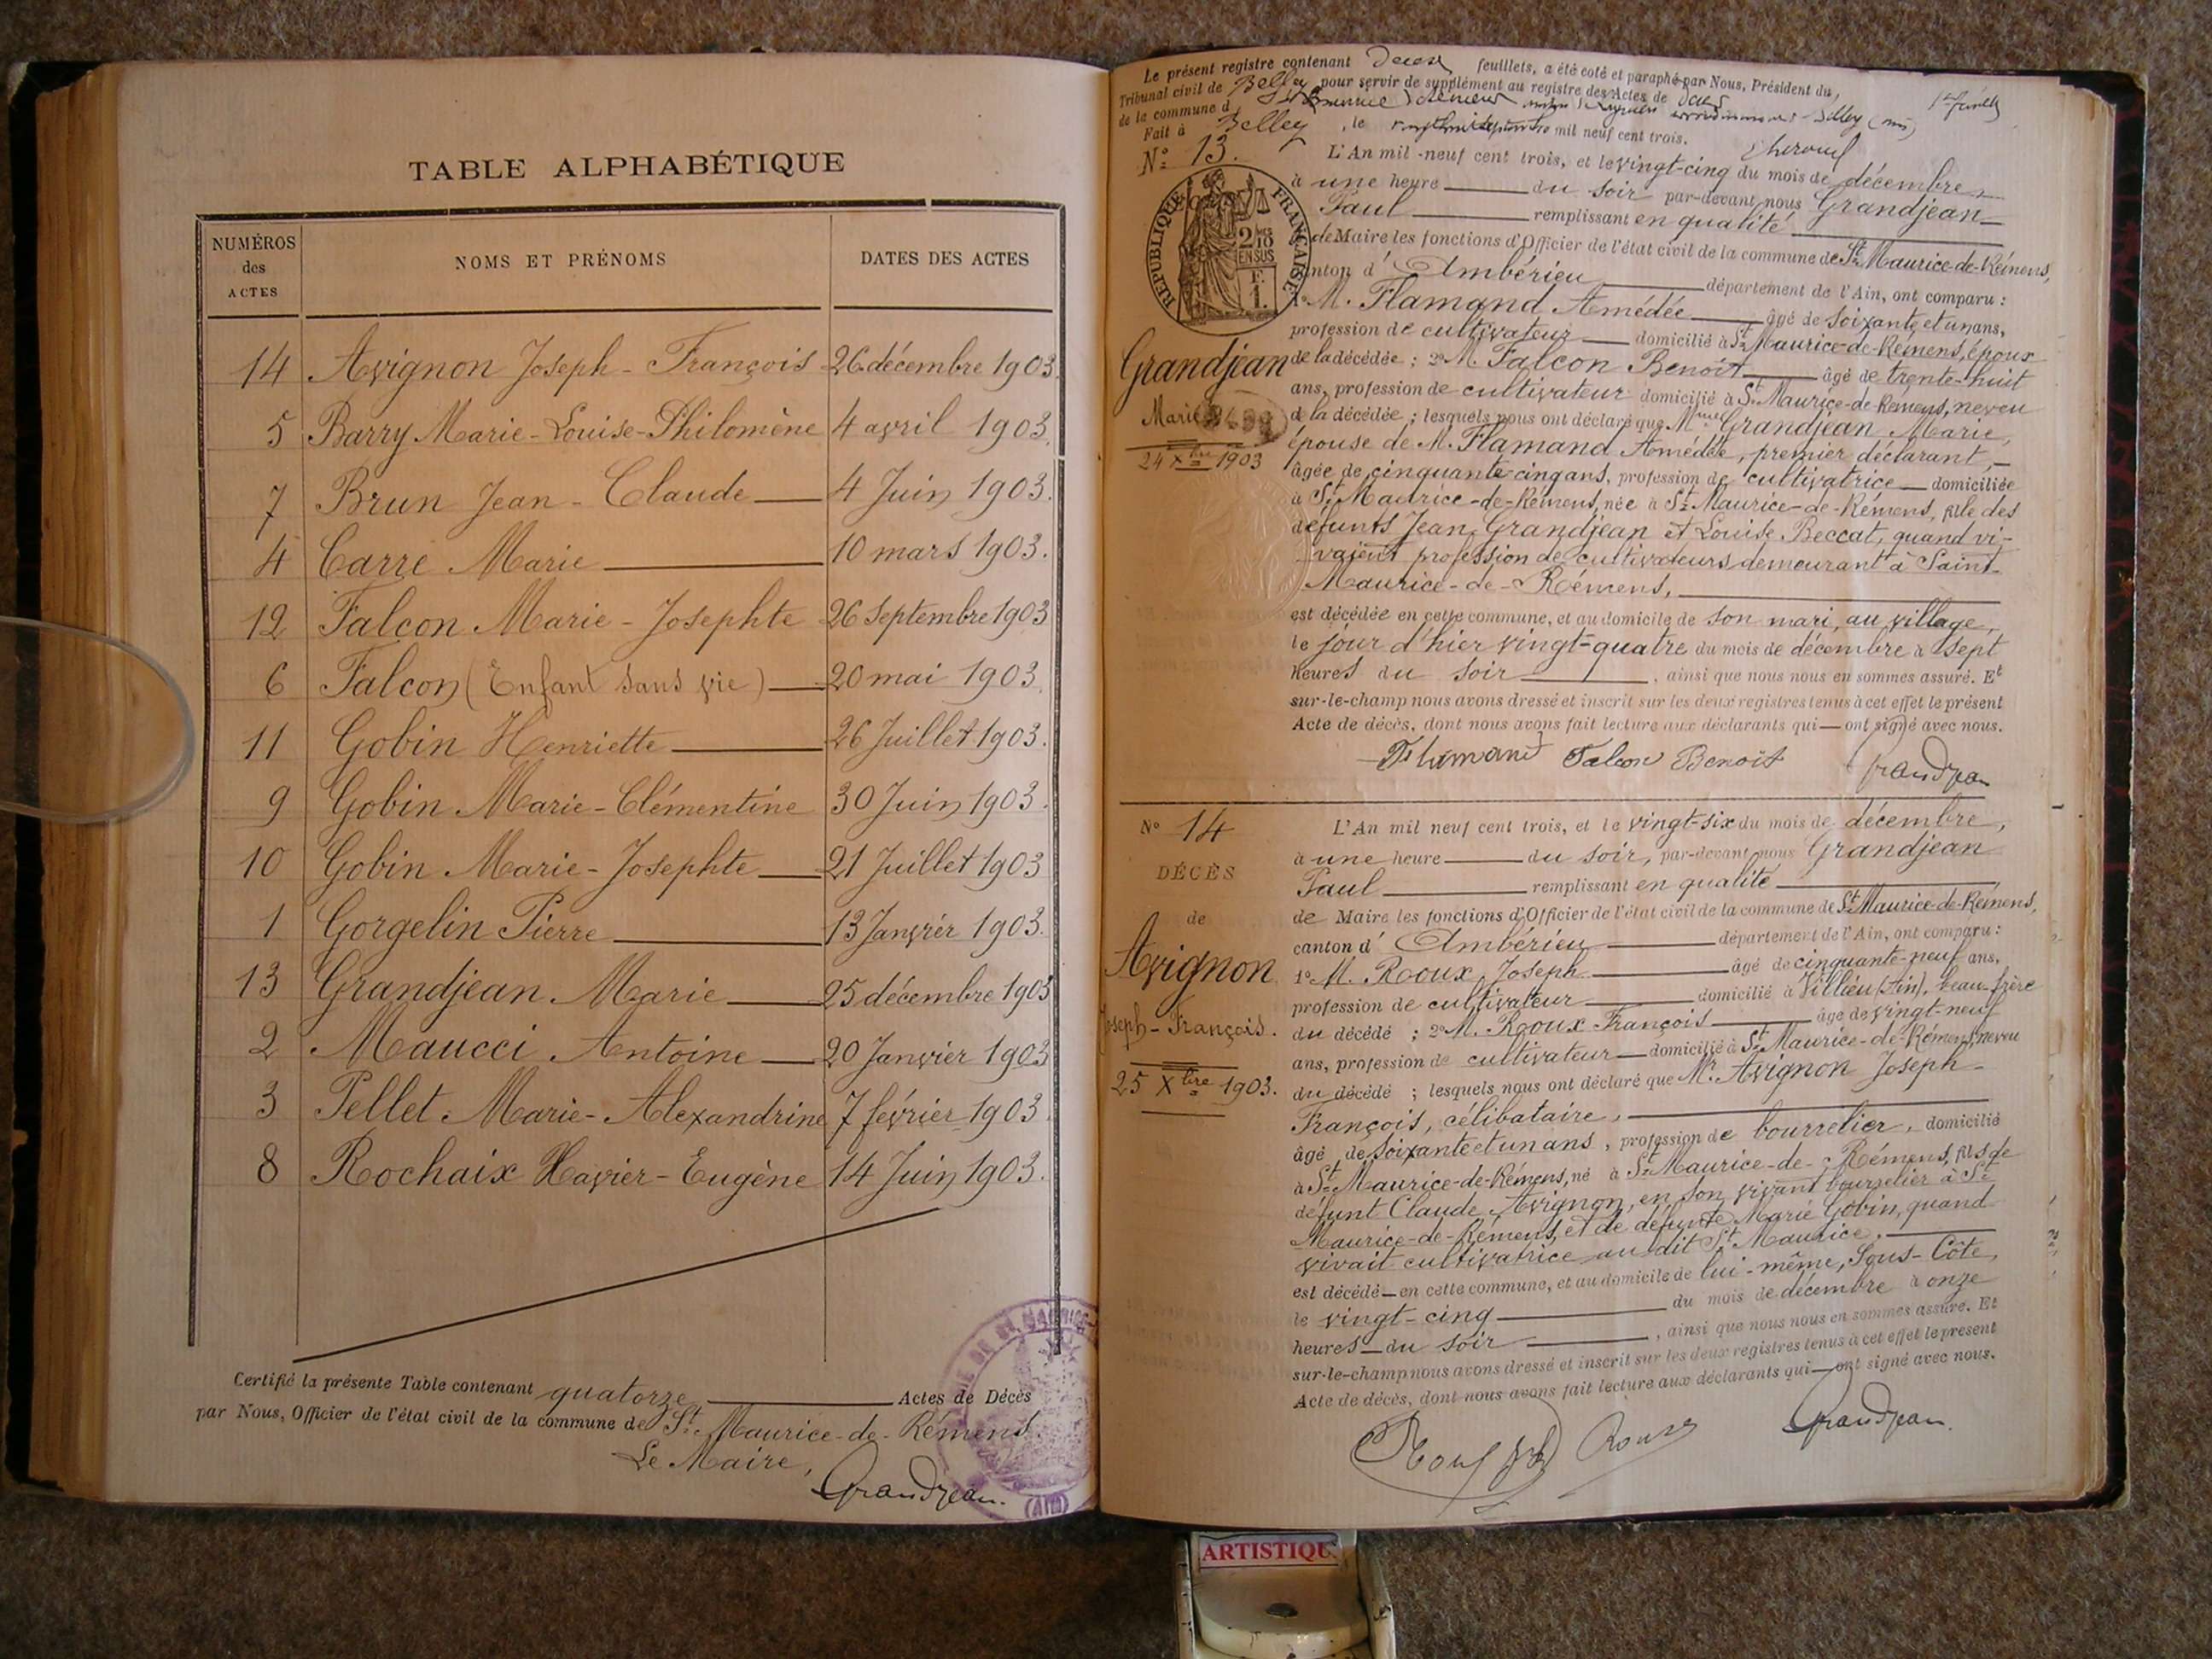 TABLE ALPHABÉTIQUE
NUMÉROS
des
ACTES
NOMS ET PRÉNOMS
DATES DES ACTES
14 Avignon Joseph-François 26 décembre 1903.
5 Barry Marie-Louise-Philomène 4 avril 1903.
7 Brun Jean-Claude 4 Juin 1903.
4 Carre Marie 10 mars 1903.
12 Falcon Marie-Josephte 26 Septembre 1903
6 Falcon (Enfant sans vie) 20 mai 1903.
11 Gobin Henriette 26 Juillet 1903.
9 Gobin Marie-Clémentine 30 Juin 1903.
10 Gobin Marie-Josephte 21 Juillet 1903
1 Gorgelin Pierre 13 Janvier 1903.
13 Grandjean Marie 25 décembre 1903
2 Maucci Antoine 20 Janvier 1903
3 Pellet Marie-Alexandrine 7 février 1903.
8 Rochaix Xavier-Eugène 14 Juin 1903.
Certifié la présente Table contenant quatorze Actes de Décès
par Nous, Officier de l'état civil de la commune de St Maurice-de-Rémens.
Le Maire,
Grandjean.
(AIN)
Le présent registre contenant Deux feuillets, a été coté et paraphé par Nous, Président du
Tribunal civil de Belley pour servir de supplément au registre des Actes de
de la commune d
Fait à Belley, le mil neuf cent trois.
No 13.
RÉPUBLIQUE FRANÇAISE
2/10
EN SUS
F.
1.
L'An mil-neuf cent trois, et le vingt-cinq du mois de décembre,
à une heure du soir par-devant nous Grandjean
Paul remplissant en qualité
de Maire les fonctions d'Officier de l'état civil de la commune de St Maurice-de-Rémens,
canton d' Ambérieu département de l'Ain, ont comparu :
1o M. Flamand Amédée âgé de soixante et un ans,
profession de cultivateur domicilié à St Maurice-de-Rémens, époux
Grandjean
Marie
24 Xbre 1903
de la décédée ; 2o M. Falcon Benoit âgé de trente-huit
ans, profession de cultivateur domicilié à St Maurice-de-Rémens, neveu
de la décédée ; lesquels nous ont déclaré que Mme Grandjean Marie,
épouse de M. Flamand Amédée, premier déclarant,
âgée de cinquante cinq ans, profession de cultivatrice domiciliée
à St Maurice-de-Rémens, née à St Maurice-de-Rémens, fille des
défunts Jean Grandjean et Louise Beccat, quand vi-
vaient profession de cultivateurs demeurant à Saint-
Maurice-de-Rémens,
est décédée en cette commune, et au domicile de son mari, au village,
le jour d'hier vingt-quatre du mois de décembre à sept
heures du soir, ainsi que nous nous en sommes assuré. Et
sur-le-champ nous avons dressé et inscrit sur les deux registres tenus à cet effet le présent
Acte de décès, dont nous avons fait lecture aux déclarants qui ont signé avec nous.
Flamand Falcon Benoit Grandjean
No 14
DÉCÈS
de
Avignon
Joseph-François.
25 Xbre 1903.
L'An mil neuf cent trois, et le vingt-six du mois de décembre,
à une heure du soir, par-devant nous Grandjean
Paul remplissant en qualité
de Maire les fonctions d'Officier de l'état civil de la commune de St Maurice-de-Rémens,
canton d' Ambérieu département de l'Ain, ont comparu :
1o M. Roux Joseph âgé de cinquante-neuf ans,
profession de cultivateur domicilié à Villieu (Ain), beau-frère
du décédé ; 2o M. Roux François âgé de vingt-neuf
ans, profession de cultivateur domicilié à St Maurice-de-Rémens, neveu
du décédé ; lesquels nous ont déclaré que Mr Avignon Joseph-
François, célibataire,
âgé de soixante et un ans, profession de bourrelier, domicilié
à St Maurice-de-Rémens, né à St Maurice-de-Rémens, fils de
défunt Claude Avignon, en son vivant bourrelier à St
Maurice-de-Rémens, et de défunte Marie Gobin, quand
vivait cultivatrice au dit St Maurice,
est décédé en cette commune, et au domicile de lui-même, Sous-Côte,
le vingt-cinq du mois de décembre à onze
heures du soir, ainsi que nous nous en sommes assuré. Et
sur-le-champ nous avons dressé et inscrit sur les deux registres tenus à cet effet le présent
Acte de décès, dont nous avons fait lecture aux déclarants qui ont signé avec nous.
Roux Roux Grandjean.
ARTISTIQU